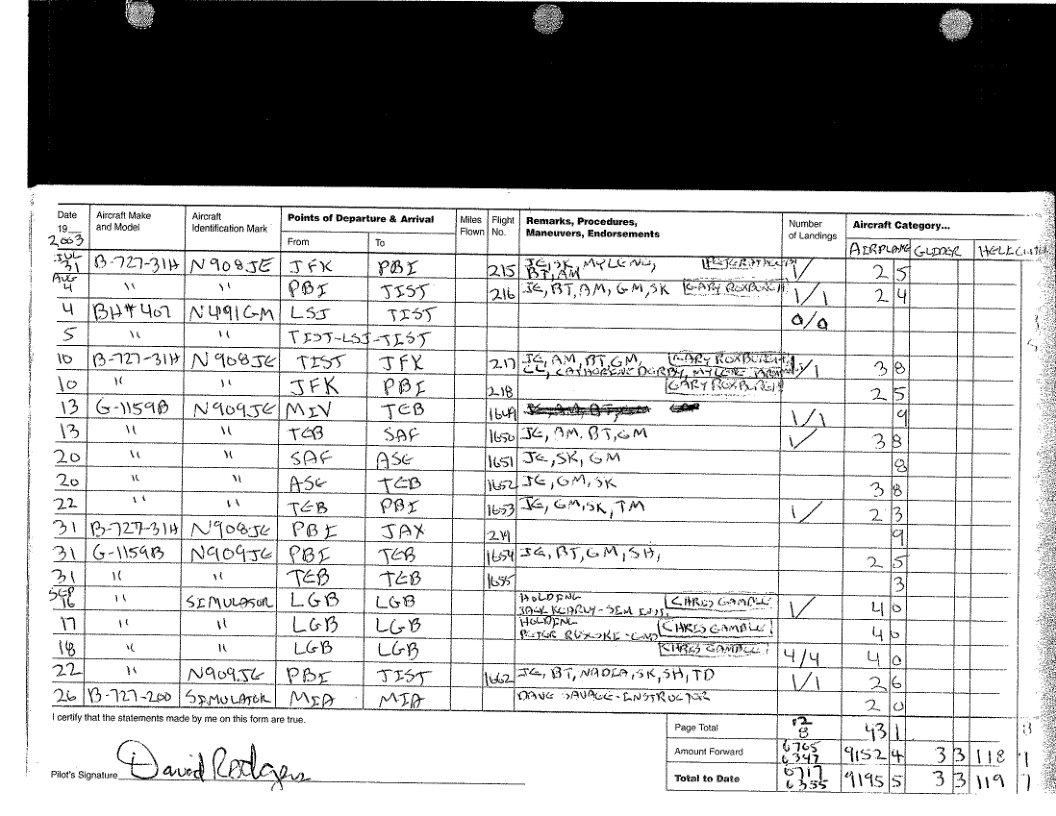 Date 19__ 2003 Aircraft Make and Model Aircraft Identification Mark Points of Departure & Arrival From To Miles Flown Flight No. Remarks, Procedures, Maneuvers, Endorsements Number of Landings Aircraft Category... AIRPLANE GLIDER
JUL 31 B-727-31H N908JE JFK PBI 215 JE, SK, MYLENE, BT, AM 1/ 2 5
AUG 4 " " PBI TIST 216 JE, BT, AM, GM, SK GARY ROXBURGH 1/1 2 4
4 BH# 407 N491GM LSJ TIST 0/0
5 " " TIST-LSJ-TIST
10 B-727-31H N908JE TIST JFK 217 JE, AM, BT, GM, GARY ROXBURGH 1/1 3 8
10 " " JFK PBI 218 GARY ROXBURGH 2 5
13 G-1159B N909JE MIV TEB 1649 1/1 9
13 " " TEB SAF 1650 JE, AM, BT, GM 1/ 3 8
20 " " SAF ASE 1651 JE, SK, GM 8
20 " " ASE TEB 1652 JE, GM, SK 3 8
22 " " TEB PBI 1653 JE, GM, SK, TM 1/ 2 3
31 B-727-31H N908JE PBI JAX 219 9
31 G-1159B N909JE PBI TEB 1654 JE, BT, GM, SH, 2 5
31 " " TEB TEB 1655 3
SEP 16 " SIMULATOR LGB LGB HOLDING CHRIS GAMBLE 1/ 4 0
17 " " LGB LGB HOLDING CHRIS GAMBLE 4 0
18 " " LGB LGB CHRIS GAMBLE 4/4 4 0
22 " N909JE PBI TIST 1662 JE, BT, NADIA, SK, SH, TD 1/1 2 6
26 B-727-200 SIMULATOR MIA MIA DAVE SAVAGE-INSTRUCTOR 2 0
I certify that the statements made by me on this form are true.
Page Total 12 8 43 1
Amount Forward 6347 9152 4 3 3 118 1
Pilot's Signature David Rodgers
Total to Date 6355 9195 5 3 3 119 1